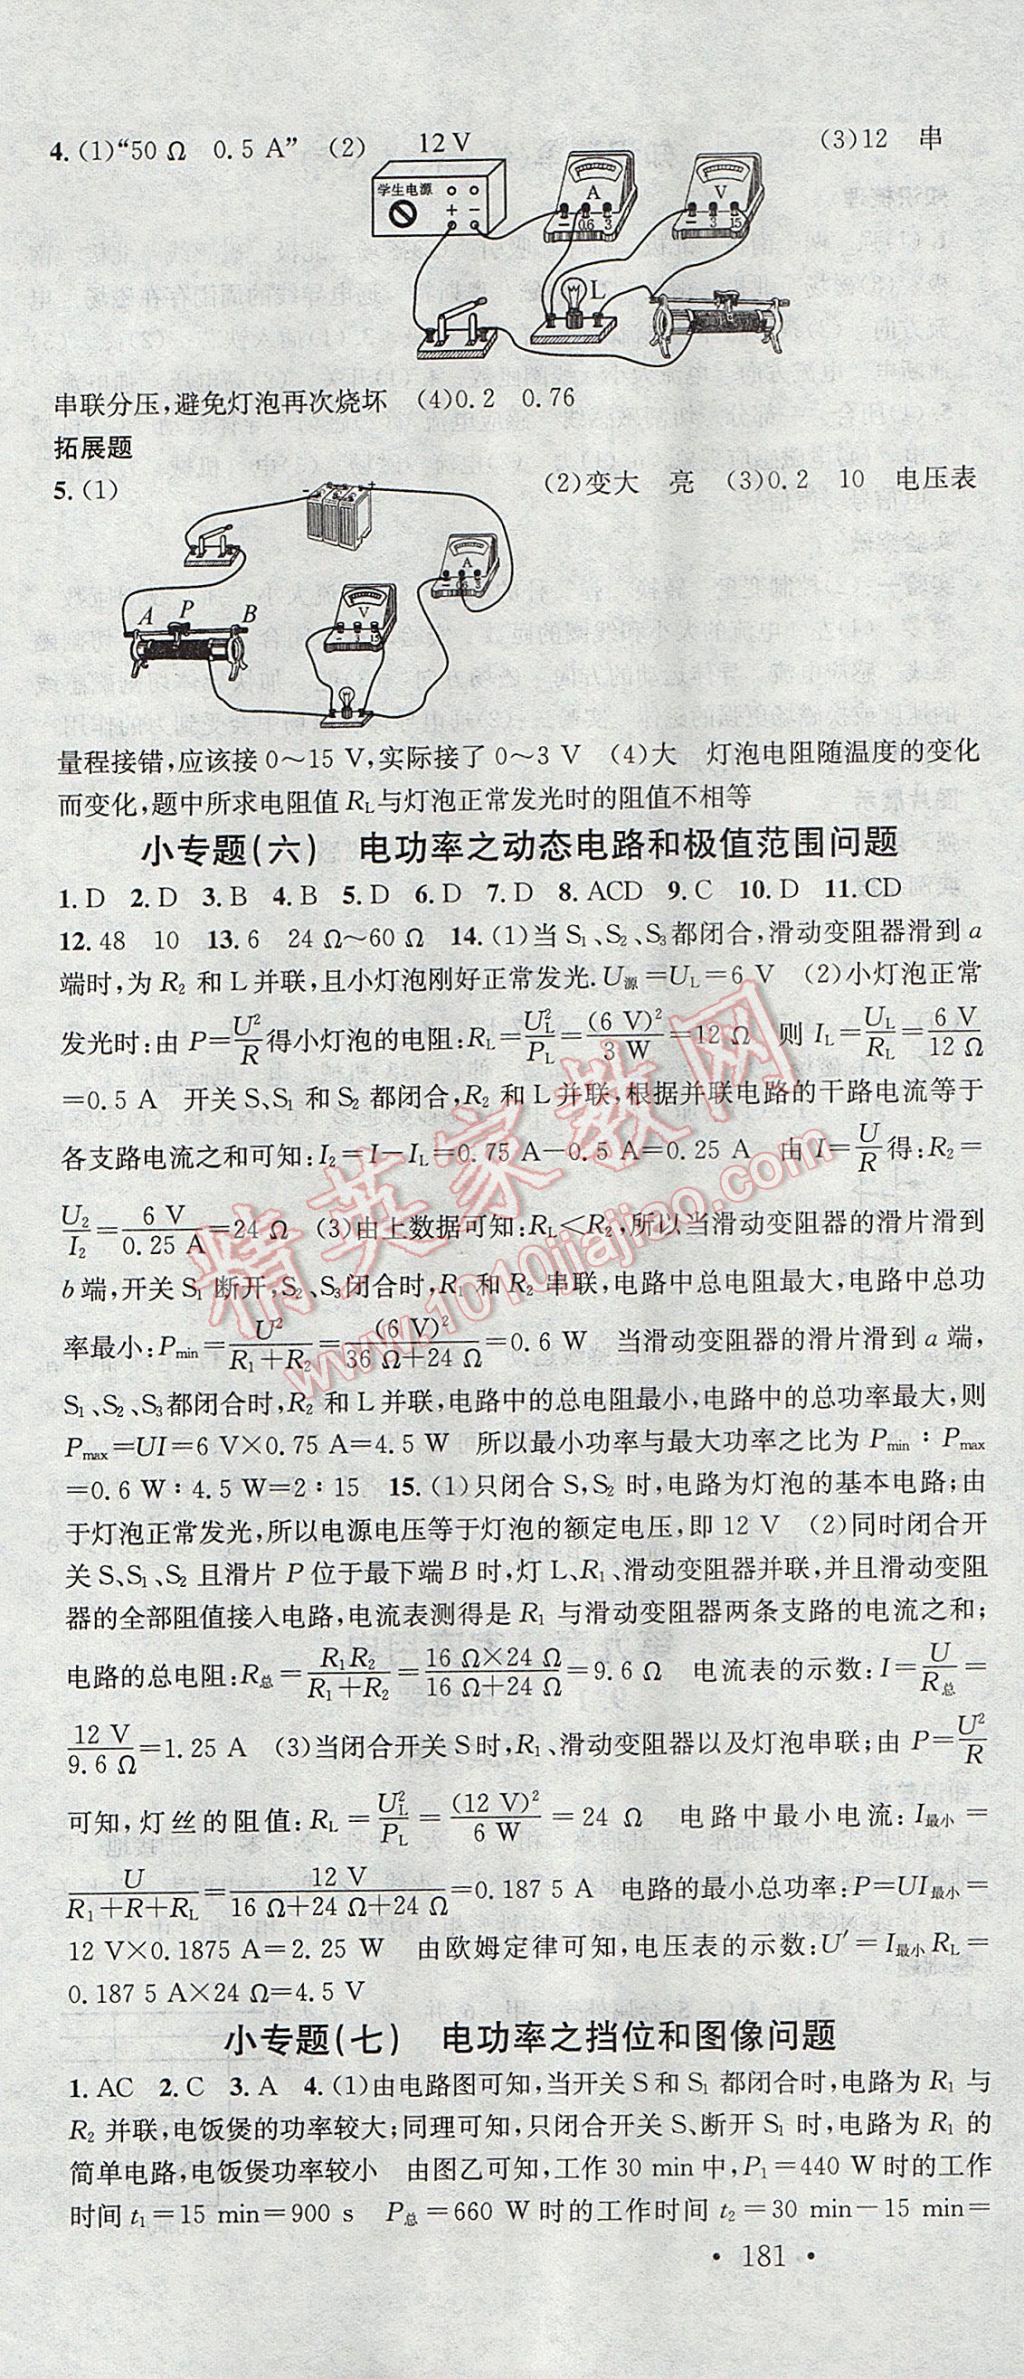 4.(1)“50 Ω 0.5 A” (2) 12 V (3)12 串
学生电源
+ −
A
− 0.6 3
V
− 3 15
L
串联分压,避免灯泡再次烧坏 (4)0.2 0.76
拓展题
5.(1) (2)变大 亮 (3)0.2 10 电压表
- +
A
− 0.6 3
V
− 3 15
A P B
量程接错,应该接 0～15 V,实际接了 0～3 V (4)大 灯泡电阻随温度的变化
而变化,题中所求电阻值 RL与灯泡正常发光时的阻值不相等
小专题(六) 电功率之动态电路和极值范围问题
1. D 2. D 3. B 4. B 5. D 6. D 7. D 8. ACD 9. C 10. D 11. CD
12. 48 10 13. 6 24 Ω～60 Ω 14. (1)当 S1、S2、S3都闭合,滑动变阻器滑到 a
端时,为 R2 和 L 并联,且小灯泡刚好正常发光. U源=UL=6 V (2)小灯泡正常
发光时:由 P=U²/R得小灯泡的电阻:RL=UL²/PL=(6 V)²/3 W=12 Ω 则 IL=UL/RL=6 V/12 Ω
=0.5 A 开关 S、S1 和 S2 都闭合,R2 和 L 并联,根据并联电路的干路电流等于
各支路电流之和可知:I2=I−IL=0.75 A−0.5 A=0.25 A 由 I=U/R得:R2=
U2/I2=6 V/0.25 A=24 Ω (3)由上数据可知:RL<R2,所以当滑动变阻器的滑片滑到
b 端,开关 S1 断开,S2、S3闭合时,R1 和 R2 串联,电路中总电阻最大,电路中总功
率最小:Pmin=U²/(R1+R2)=(6 V)²/(36 Ω+24 Ω)=0.6 W 当滑动变阻器的滑片滑到 a 端,
S1、S2、S3都闭合时,R2 和 L 并联,电路中的总电阻最小,电路中的总功率最大,则
Pmax=UI=6 V×0.75 A=4.5 W 所以最小功率与最大功率之比为 Pmin∶Pmax
=0.6 W∶4.5 W=2∶15 15. (1)只闭合 S,S2 时,电路为灯泡的基本电路;由
于灯泡正常发光,所以电源电压等于灯泡的额定电压,即 12 V (2)同时闭合开
关 S、S1、S2 且滑片 P 位于最下端 B 时,灯 L、R1、滑动变阻器并联,并且滑动变阻
器的全部阻值接入电路,电流表测得是 R1 与滑动变阻器两条支路的电流之和;
电路的总电阻:R总=R1R2/(R1+R2)=(16 Ω×24 Ω)/(16 Ω+24 Ω)=9.6 Ω 电流表的示数:I=U/R总=
12 V/9.6 Ω=1.25 A (3)当闭合开关 S 时,R1、滑动变阻器以及灯泡串联;由 P=U²/R
可知,灯丝的阻值:RL=UL²/PL=(12 V)²/6 W=24 Ω 电路中最小电流:I最小=
U/(R1+R+RL)=12 V/(16 Ω+24 Ω+24 Ω)=0.187 5 A 电路的最小总功率:P=UI最小=
12 V×0.1875 A=2.25 W 由欧姆定律可知,电压表的示数:U′=I最小RL=
0.187 5 A×24 Ω=4.5 V
小专题(七) 电功率之挡位和图像问题
1. AC 2. C 3. A 4. (1)由电路图可知,当开关 S 和 S1 都闭合时,电路为 R1 与
R2 并联,电饭煲的功率较大;同理可知,只闭合开关 S、断开 S1 时,电路为 R1 的
简单电路,电饭煲功率较小 由图乙可知,工作 30 min 中,P1=440 W 时的工作
时间 t1=15 min=900 s P总=660 W 时的工作时间 t2=30 min−15 min=
• 181 •
精英家教网
www.1010jiajiao.com